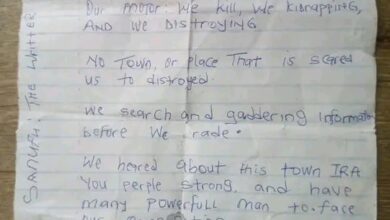 Our motor: We kill, We kidnapping,
AND We DISTROYING
NO TOWN, or PLACE That is scered
us to distroyed.
We search and gaddering Information
before We rade.
We heared about this town IRA
You perple strong, and have
many powerfull man to face
SAMUEL: THE WRITTER